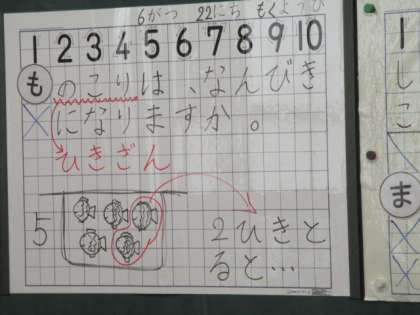 6がつ 22にち もくようび
1 2 3 4 5 6 7 8 9 10
も のこりは、なんびき
になりますか。
ひきざん
5
2ひきと
ると…
1
し
こ
ま